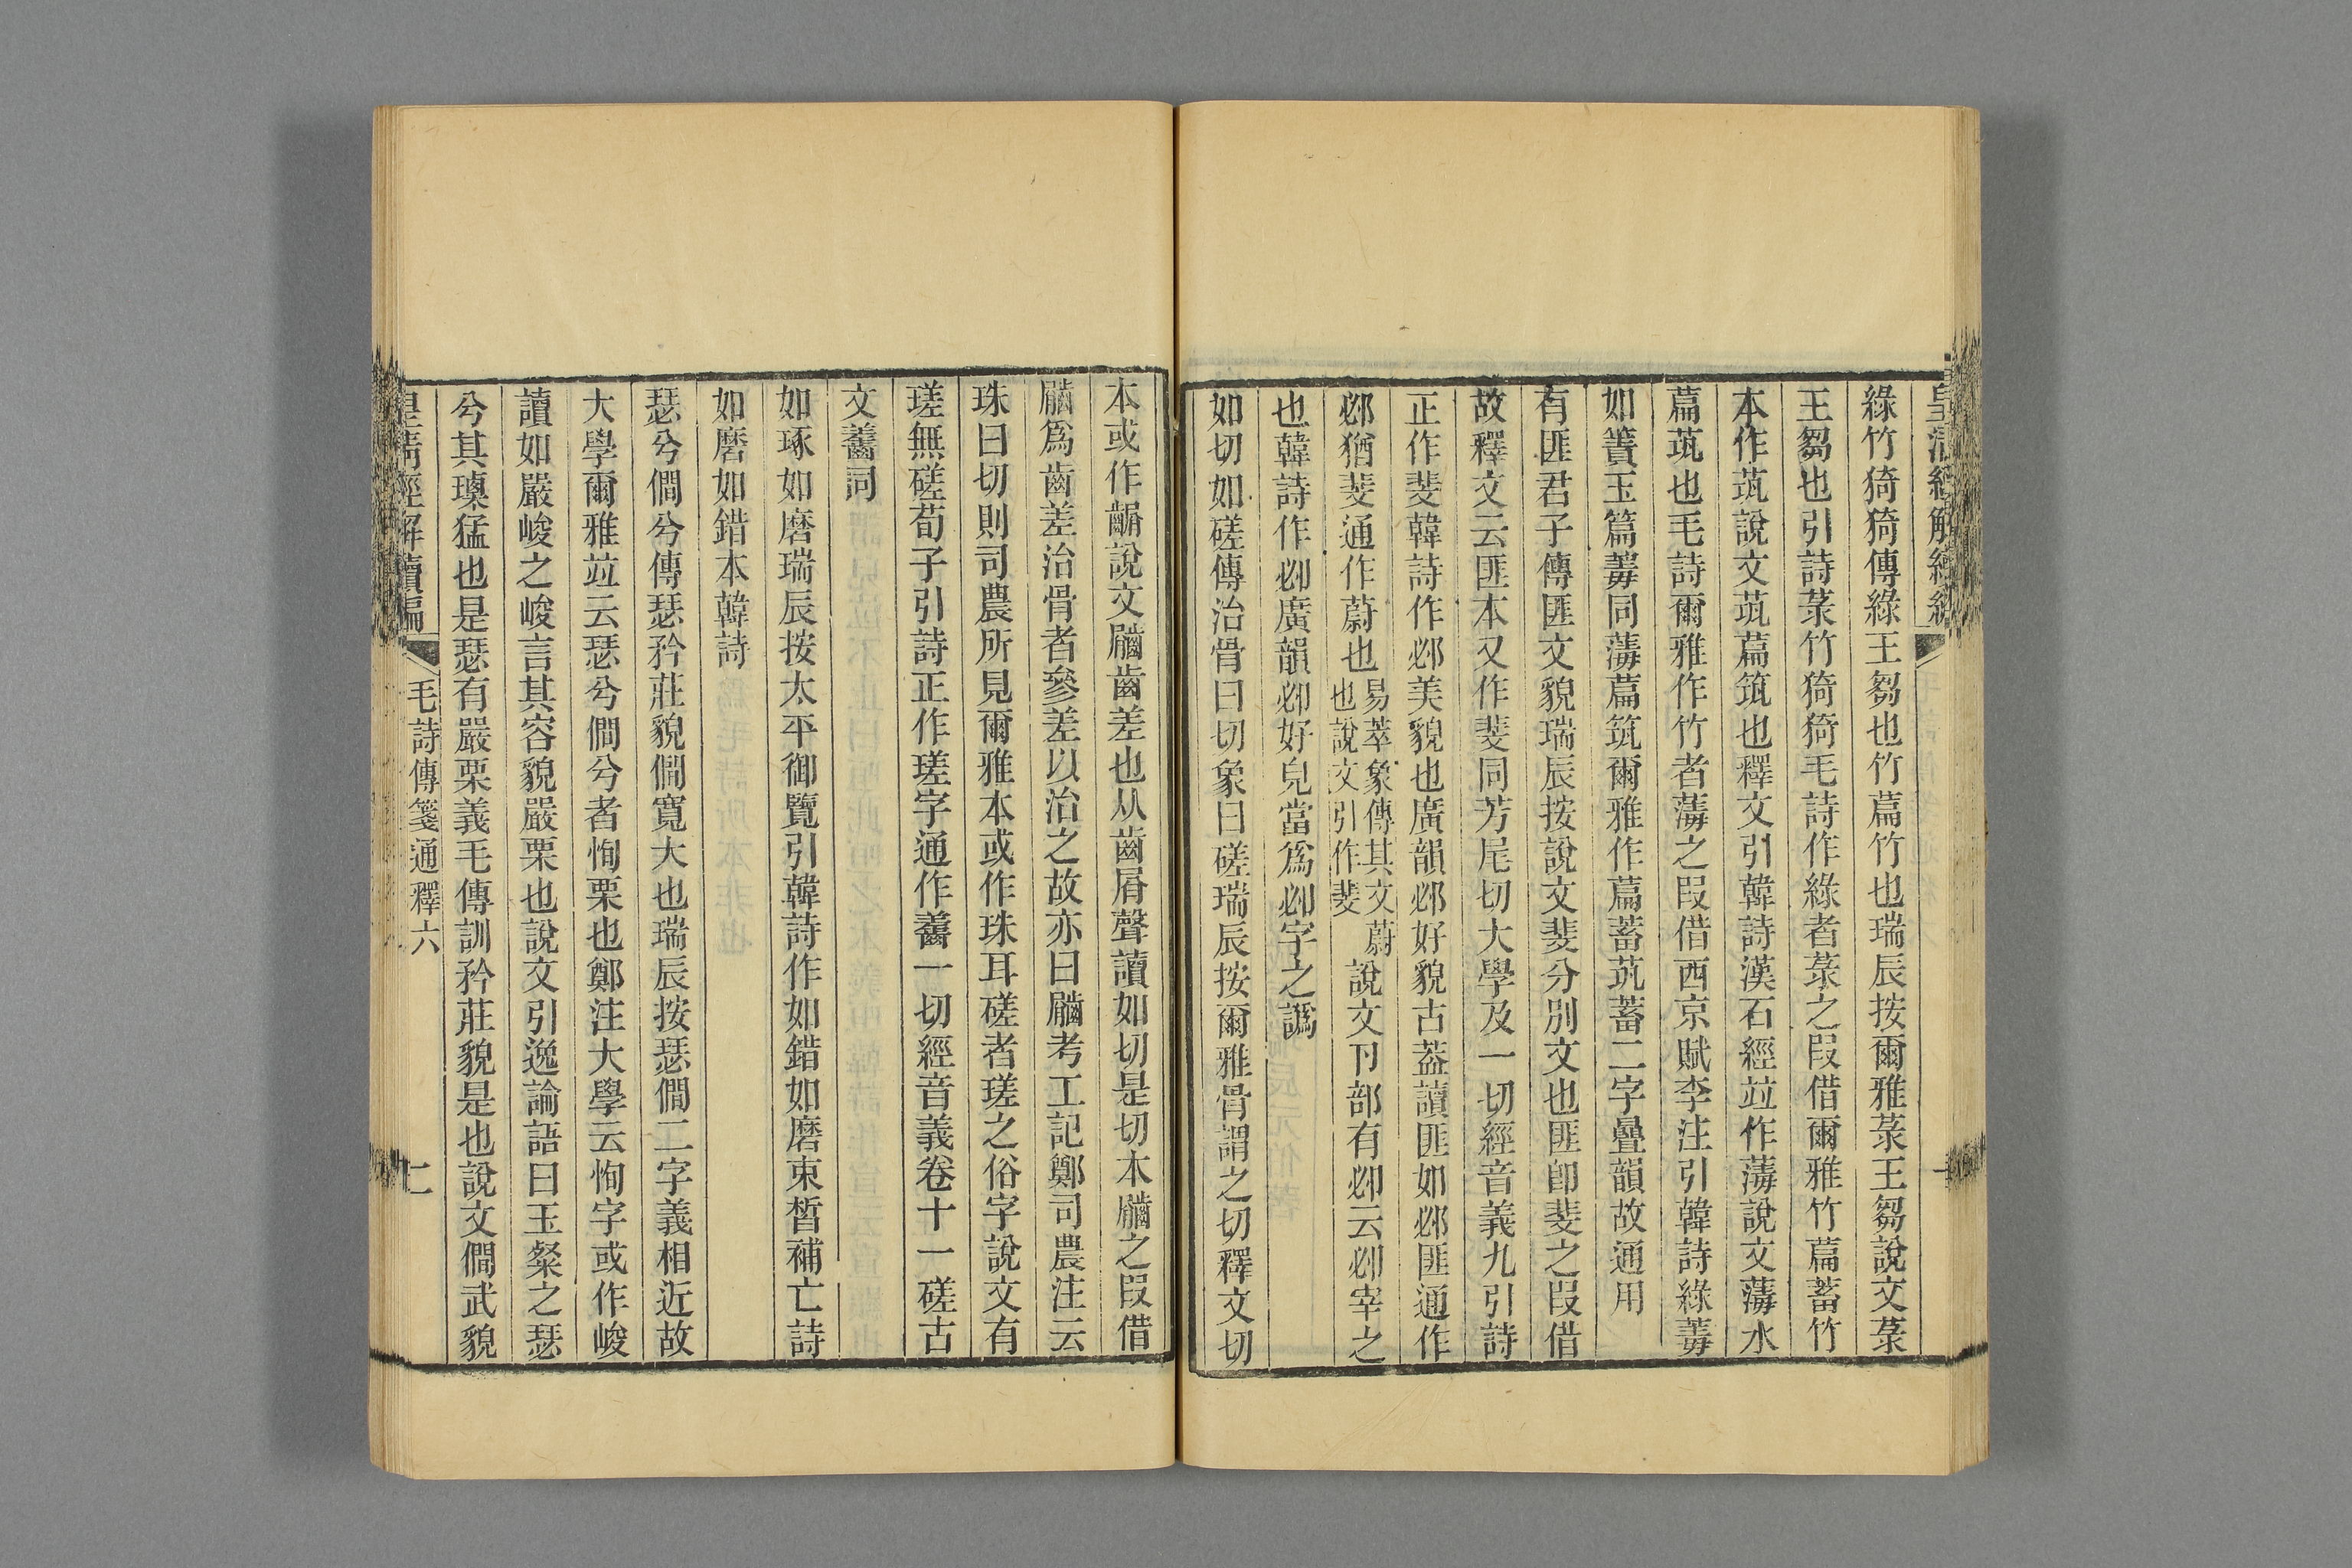 綠竹猗猗傳綠王芻也竹萹竹也瑞辰按爾雅菉王芻說文菉
王芻也引詩菉竹猗猗毛詩作綠者菉之叚借爾雅竹萹蓄竹
本作茿說文茿萹筑也釋文引韓詩漢石經竝作薄說文薄水
萹茿也毛詩爾雅作竹者薄之叚借西京賦李注引韓詩綠䔽
如簀玉篇䔽同薄萹筑爾雅作萹蓄茿蓄二字疊韻故通用
有匪君子傳匪文貌瑞辰按說文斐分別文也匪卽斐之叚借
故釋文云匪本又作斐同芳尾切大學及一切經音義九引詩
正作斐韓詩作邲美貌也廣韻邲好貌古葢讀匪如邲匪通作
邲猶斐通作蔚也易萃象傳其文蔚也說文引作斐說文卪部有𠨘云𠨘宰之
也韓詩作𠨘廣韻𠨘好皃當爲𠨘字之譌
如切如磋傳治骨曰切象曰磋瑞辰按爾雅骨謂之切釋文切
本或作𪗨說文𪙺齒差也从齒屑聲讀如切是切本𪙺之叚借
𪙺爲齒差治骨者參差以治之故亦曰𪙺考工記鄭司農注云
珠曰切則司農所見爾雅本或作珠耳磋者瑳之俗字說文有
瑳無磋荀子引詩正作瑳字通作䰈一切經音義卷十一磋古
文䰈同
如琢如磨瑞辰按太平御覽引韓詩作如錯如磨束皙補亡詩
如磨如錯本韓詩
瑟兮僩兮傳瑟矜莊貌僩寬大也瑞辰按瑟僩二字義相近故
大學爾雅竝云瑟兮僩兮者恂栗也鄭注大學云恂字或作峻
讀如嚴峻之峻言其容貌嚴栗也說文引逸論語曰玉粲之瑟
兮其璪猛也是瑟有嚴栗義毛傳訓矜莊貌是也說文僩武貌
皇清經解續編 毛詩傳箋通釋六 二